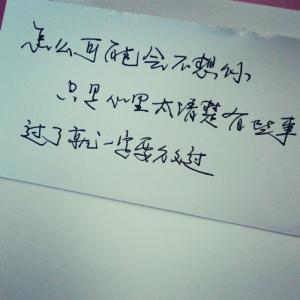 怎么可能会不想你
只是心里太清楚有些事
过了就一定要放过